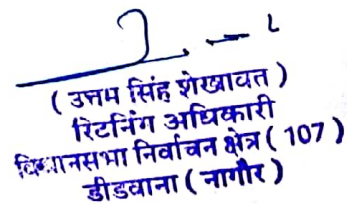 (उत्तम सिंह शेखावत)
रिटर्निंग अधिकारी
विधानसभा निर्वाचन क्षेत्र (107)
डीडवाना (नागौर)